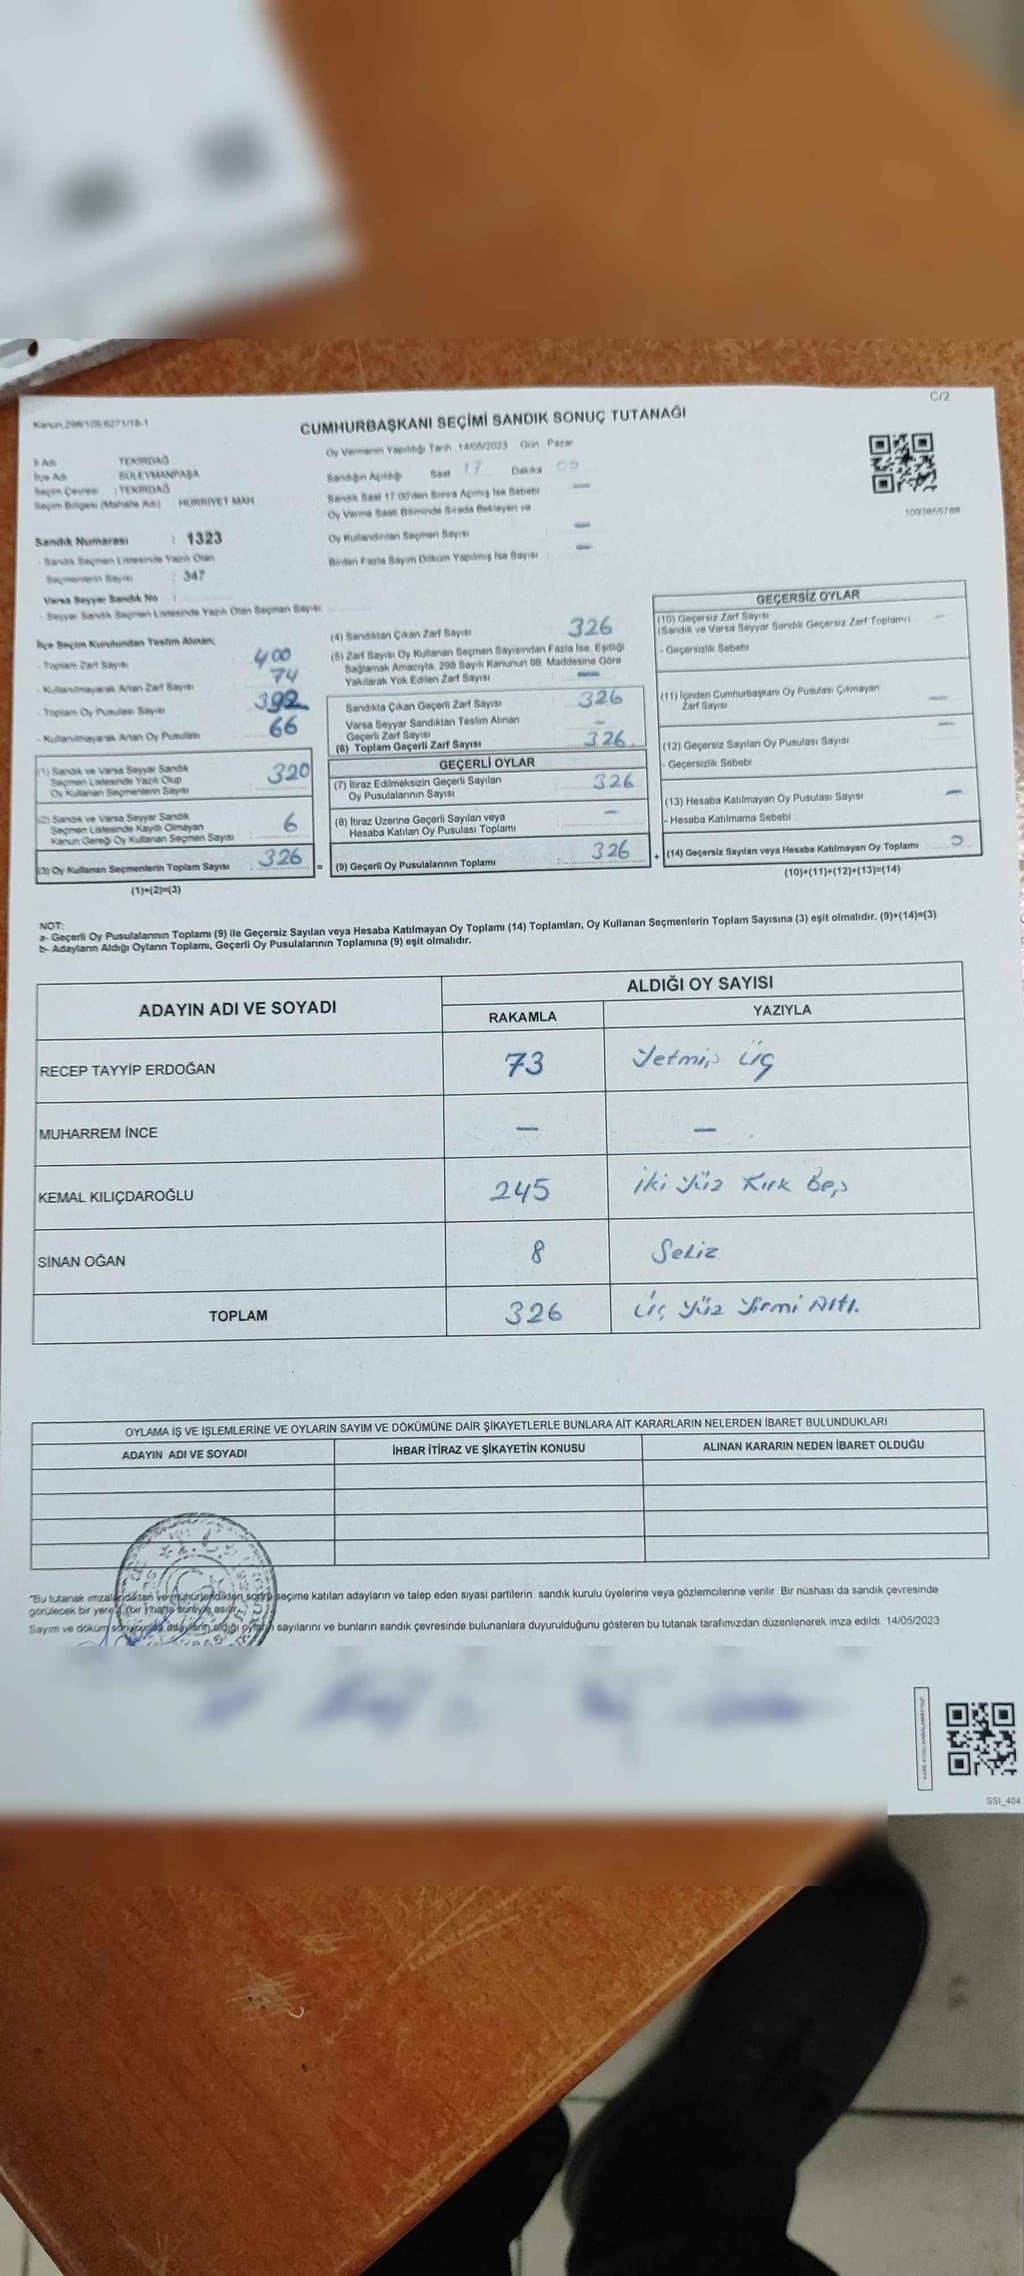 C/2
Kanun 298/105 6271/18-1
CUMHURBAŞKANI SEÇİMİ SANDIK SONUÇ TUTANAĞI
İl Adı TEKİRDAĞ
İlçe Adı SÜLEYMANPAŞA
Seçim Çevresi : TEKİRDAĞ
Seçim Bölgesi (Mahalle Adı) HÜRRİYET MAH
Oy Vermenin Yapıldığı Tarih 14/05/2023 Gün Pazar
Sandığın Açıldığı Saat 17 Dakika
Sandık Saat 17.00'den Sonra Açımış İse Sebebi —
Oy Verme Saati Bitiminde Sırada Bekleyen ve
Oy Kullandırılan Seçmen Sayısı —
Birden Fazla Sayım Döküm Yapılmış İse Sayısı —
1093655788
Sandık Numarası : 1323
- Sandık Seçmen Listesinde Yazılı Olan
Seçmenlerin Sayısı : 347
Varsa Seyyar Sandık No :
- Seyyar Sandık Seçmen Listesinde Yazılı Olan Seçmen Sayısı
İlçe Seçim Kurulundan Teslim Alınan;
- Toplam Zarf Sayısı 400
- Kullanılmayarak Artan Zarf Sayısı 74
- Toplam Oy Pusulası Sayısı 392
- Kullanılmayarak Artan Oy Pusulası 66
(1) Sandık ve Varsa Seyyar Sandık
Seçmen Listesinde Yazılı Olup
Oy Kullanan Seçmenlerin Sayısı 320
(2) Sandık ve Varsa Seyyar Sandık
Seçmen Listesinde Kayıtlı Olmayan
Kanun Gereği Oy Kullanan Seçmen Sayısı 6
(3) Oy Kullanan Seçmenlerin Toplam Sayısı : 326
(1)+(2)=(3)
(4) Sandıktan Çıkan Zarf Sayısı 326
(5) Zarf Sayısı Oy Kullanan Seçmen Sayısından Fazla İse, Eşitliği
Sağlamak Amacıyla, 298 Sayılı Kanunun 98. Maddesine Göre
Yakılarak Yok Edilen Zarf Sayısı —
Sandıkta Çıkan Geçerli Zarf Sayısı 326
Varsa Seyyar Sandıktan Teslim Alınan
Geçerli Zarf Sayısı —
(6) Toplam Geçerli Zarf Sayısı 326
GEÇERLİ OYLAR
(7) İtiraz Edilmeksizin Geçerli Sayılan
Oy Pusulalarının Sayısı : 326
(8) İtiraz Üzerine Geçerli Sayılan veya
Hesaba Katılan Oy Pusulası Toplamı : —
= (9) Geçerli Oy Pusulalarının Toplamı : 326
GEÇERSİZ OYLAR
(10) Geçersiz Zarf Sayısı
(Sandık ve Varsa Seyyar Sandık Geçersiz Zarf Toplamı) —
- Geçersizlik Sebebi
(11) İçinden Cumhurbaşkanı Oy Pusulası Çıkmayan
Zarf Sayısı —
(12) Geçersiz Sayılan Oy Pusulası Sayısı —
- Geçersizlik Sebebi
(13) Hesaba Katılmayan Oy Pusulası Sayısı —
- Hesaba Katılmama Sebebi
+ (14) Geçersiz Sayılan veya Hesaba Katılmayan Oy Toplamı 0
(10)+(11)+(12)+(13)=(14)
NOT:
a- Geçerli Oy Pusulalarının Toplamı (9) ile Geçersiz Sayılan veya Hesaba Katılmayan Oy Toplamı (14) Toplamları, Oy Kullanan Seçmenlerin Toplam Sayısına (3) eşit olmalıdır. (9)+(14)=(3)
b- Adayların Aldığı Oyların Toplamı, Geçerli Oy Pusulalarının Toplamına (9) eşit olmalıdır.
ADAYIN ADI VE SOYADI
ALDIĞI OY SAYISI
RAKAMLA YAZIYLA
RECEP TAYYİP ERDOĞAN 73 Yetmiş Üç
MUHARREM İNCE — —
KEMAL KILIÇDAROĞLU 245 İki Yüz Kırk Beş
SİNAN OĞAN 8 Sekiz
TOPLAM 326 Üç Yüz Yirmi Altı.
OYLAMA İŞ VE İŞLEMLERİNE VE OYLARIN SAYIM VE DÖKÜMÜNE DAİR ŞİKAYETLERLE BUNLARA AİT KARARLARIN NELERDEN İBARET BULUNDUKLARI
ADAYIN ADI VE SOYADI İHBAR İTİRAZ VE ŞİKAYETİN KONUSU ALINAN KARARIN NEDEN İBARET OLDUĞU
"Bu tutanak imzalandıktan ve mühürlendikten sonra seçime katılan adayların ve talep eden siyasi partilerin sandık kurulu üyelerine veya gözlemcilerine verilir. Bir nüshası da sandık çevresinde
görülecek bir yere (bir) hafta süreyle asılır.
Sayım ve döküm sonucunda adayların aldığı oyların sayılarını ve bunların sandık çevresinde bulunanlara duyurulduğunu gösteren bu tutanak tarafımızdan düzenlenerek imza edildi. 14/05/2023
SSI_404